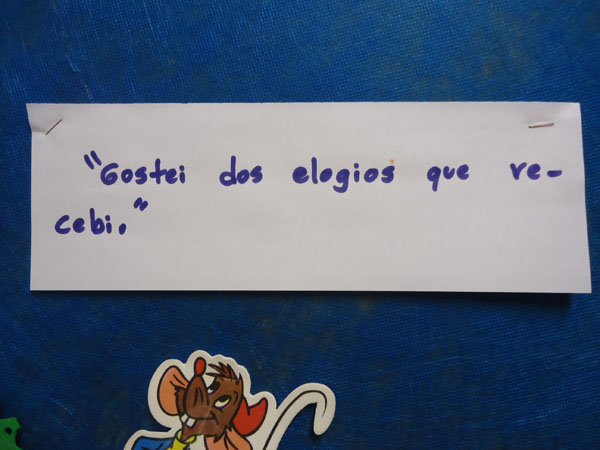 "Gostei dos elogios que re-
cebi."